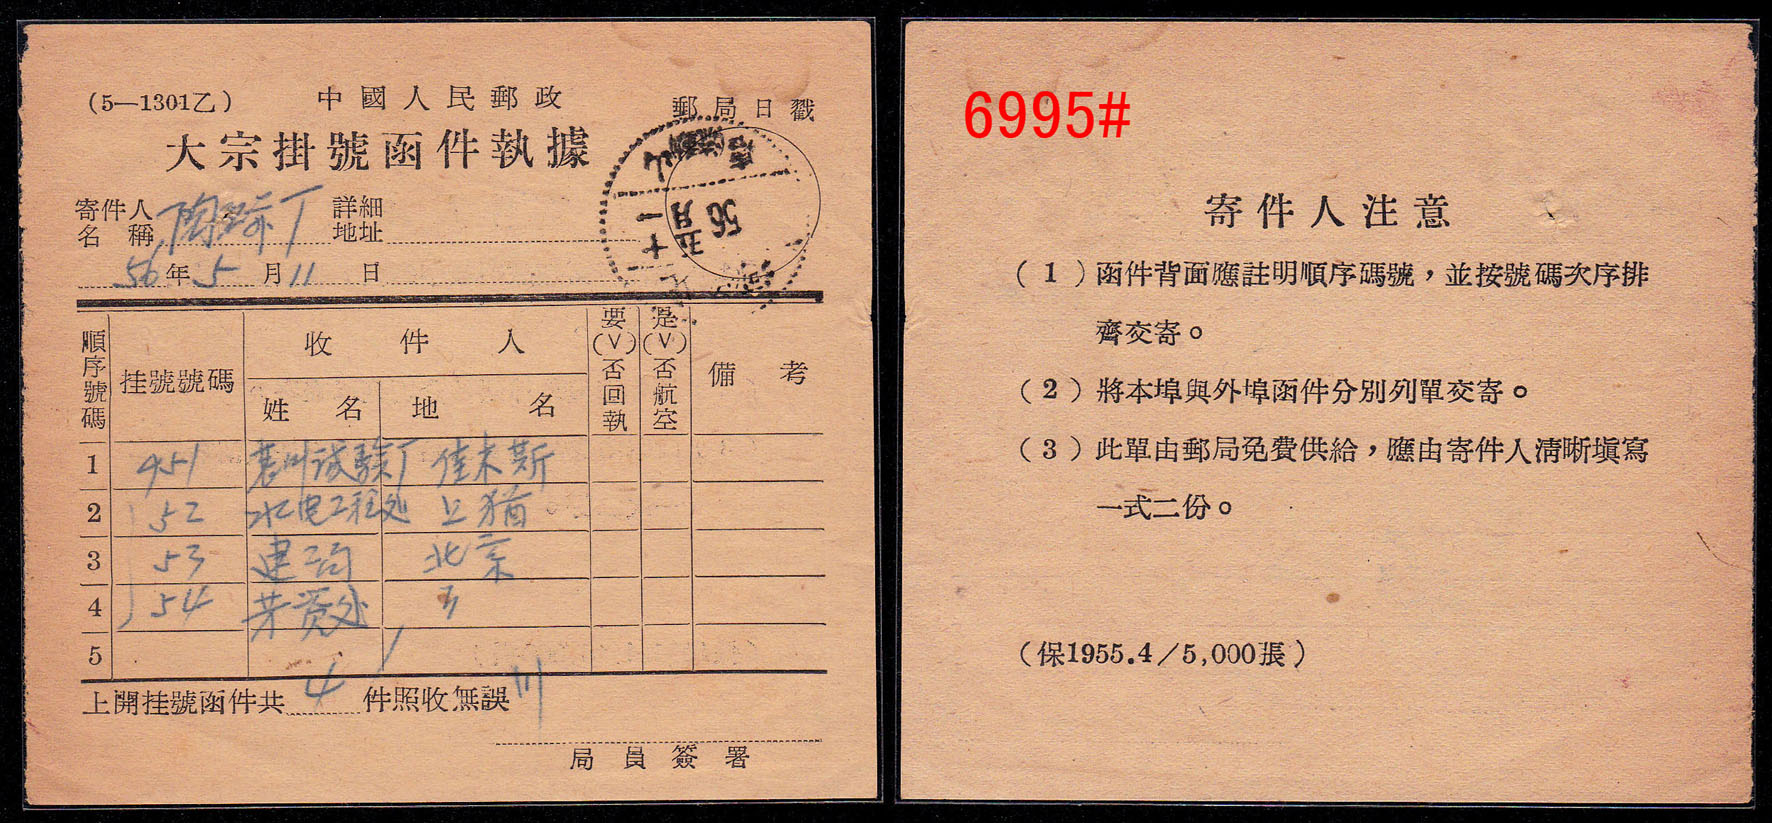 (5—1301乙)
中國人民郵政
郵局日戳
大宗掛號函件執據
寄件人
名稱
陶
詳細
地址
56年5月11日
56
五月
十一
順序號碼
挂號號碼
收件人
姓名
地名
要(V)否回執
是(V)否航空
備考
1 451 試驗厂 佳木斯
2 52 水电工程处 上犹
3 53 建 北京
4 54 处
5
上開挂號函件共 4 件照收無誤
局員簽署
6995#
寄件人注意
(1)函件背面應註明順序碼號，並按號碼次序排
齊交寄。
(2)將本埠與外埠函件分別列單交寄。
(3)此單由郵局免費供給，應由寄件人清晰填寫
一式二份。
(保1955.4/5,000張)